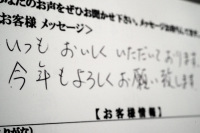 あなたのお声をぜひお聞かせ下さい。メッセージお待ちしてます。
お客様 メッセージ>
いつも おいしく いただいております。
今年もよろしくお願い致します。
【お客様情報】